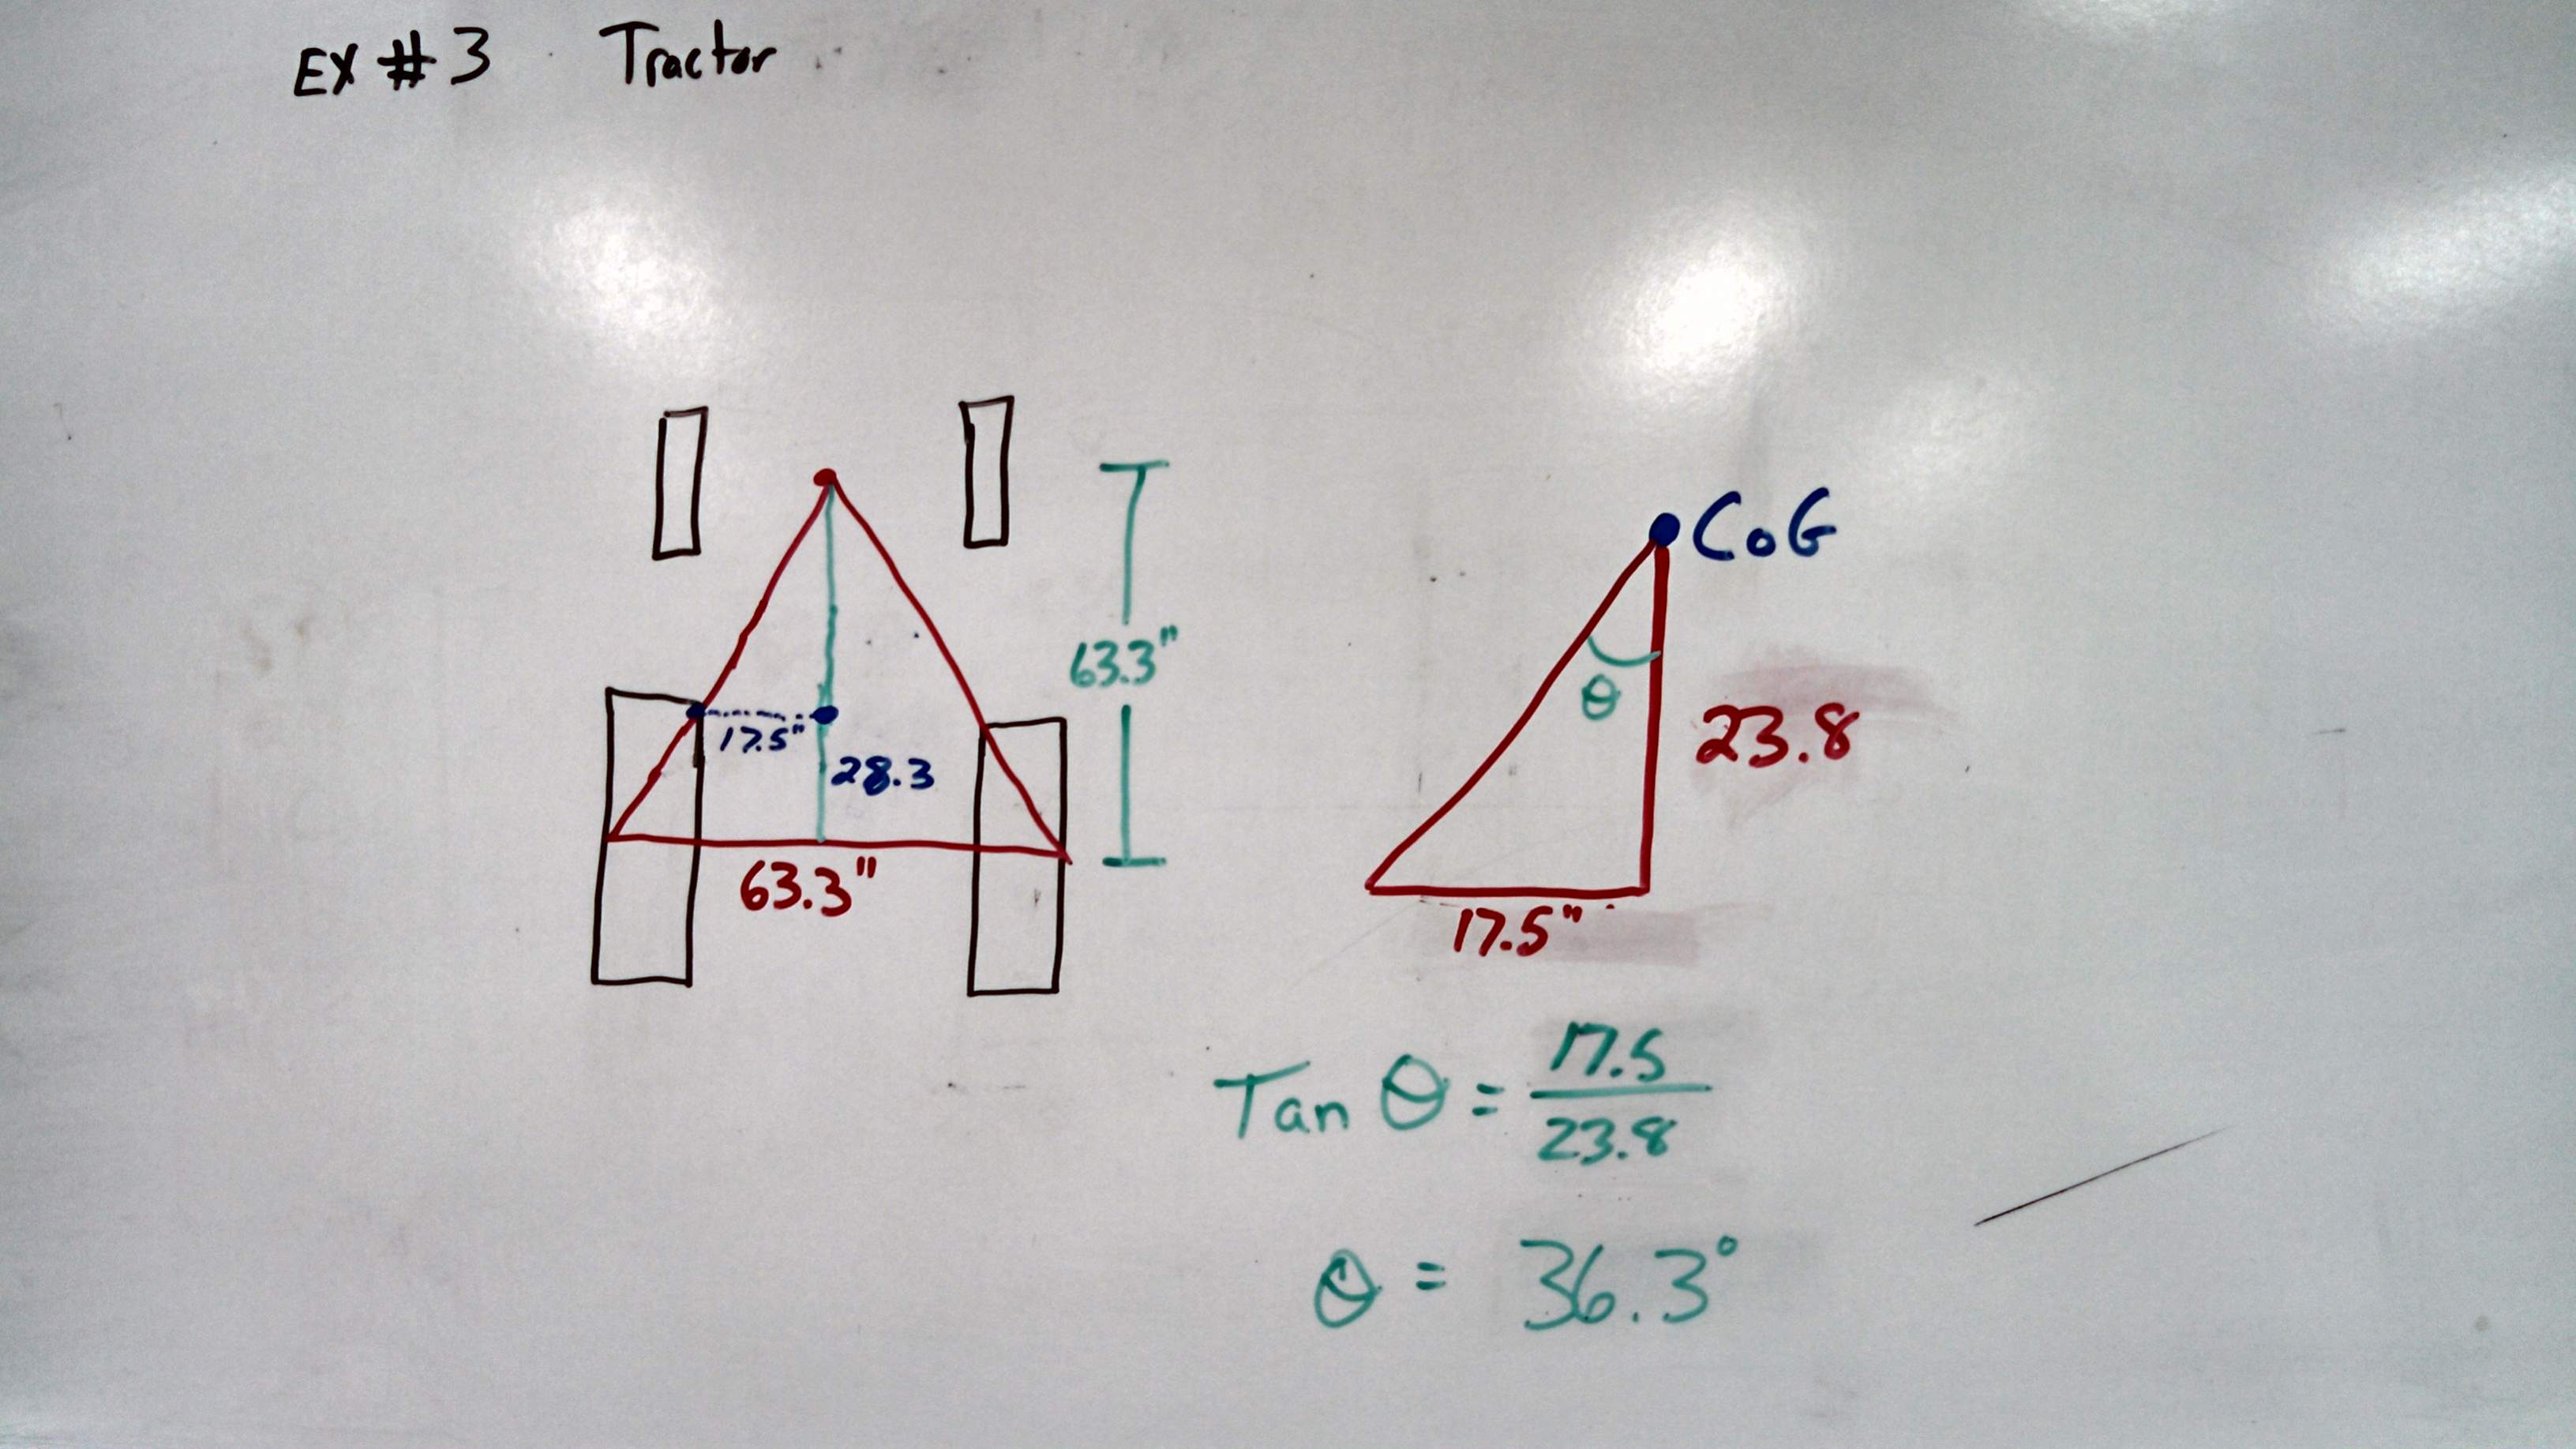 EX #3 Tractor
63.3"
17.5"
28.3
63.3"
CoG
θ
23.8
17.5"
Tan θ = 17.5
23.8
θ = 36.3°